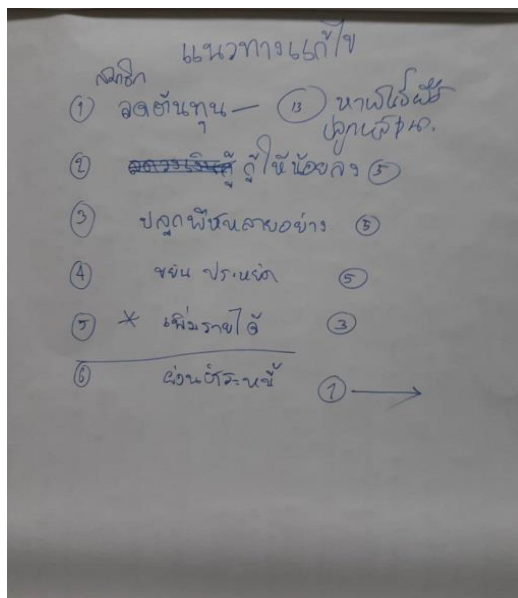 แนวทางแก้ไข
สมาชิก
① ลดต้นทุน — ⑬ หาพันธุ์พืช
ปลูกผสม.
② กู้ให้น้อยลง ⑤
③ ปลูกพืชหลายอย่าง ⑤
④ ขยัน ประหยัด ⑤
⑤ * เพิ่มรายได้ ③
⑥ ผ่อนชำระหนี้ ① →